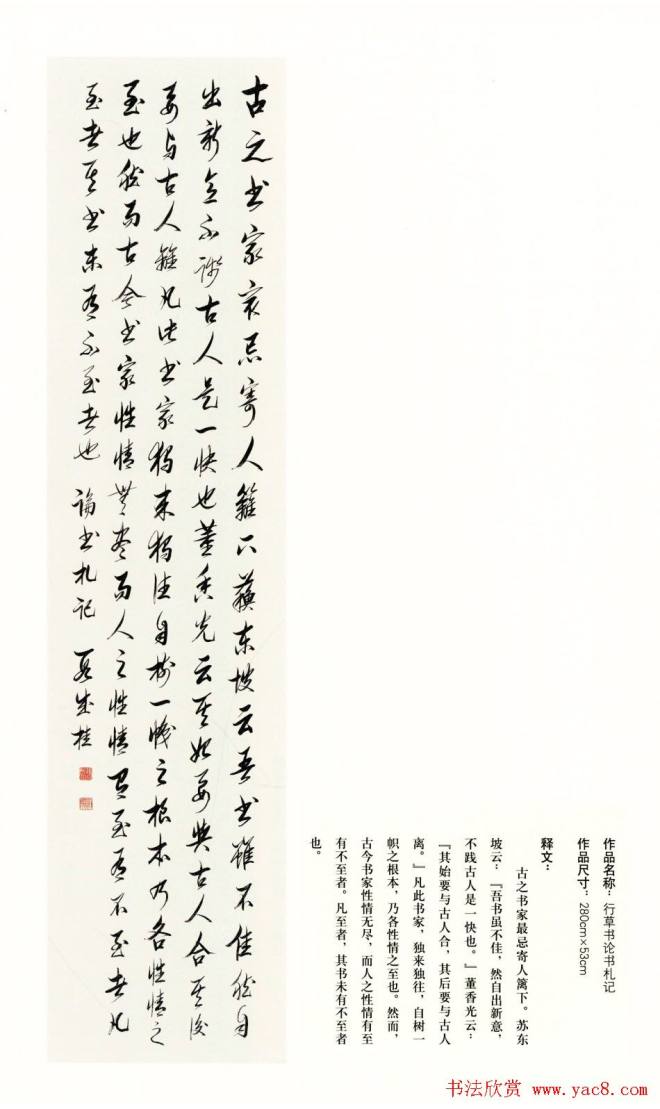 作品名称：行草书论书札记
作品尺寸：280cm×53cm
释文：
古之书家最忌寄人篱下。苏东
坡云：『吾书虽不佳，然自出新意，
不践古人是一快也。』董香光云：
『其始要与古人合，其后要与古人
离。』凡此书家，独来独往，自树一
帜之根本，乃各性情之至也。然而，
古今书家性情无尽，而人之性情有至
有不至者。凡至者，其书未有不至者
也。
古之书家最忌寄人籬下蘇东坡云吾书雖不佳然自
出新意不踐古人是一快也董香光云其始要與古人合其後
要与古人離凡此书家獨来獨往自樹一幟之根本乃各性情之
至也然而古今书家性情無盡而人之性情有至有不至者凡
至者其书未有不至者也 論书札记 段成桂
书法欣赏 www.yac8.com